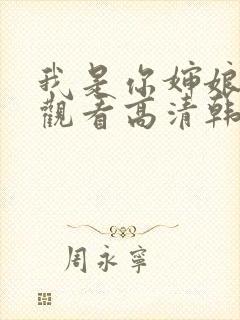 我是你婶娘
觀看高清韩
周永寧